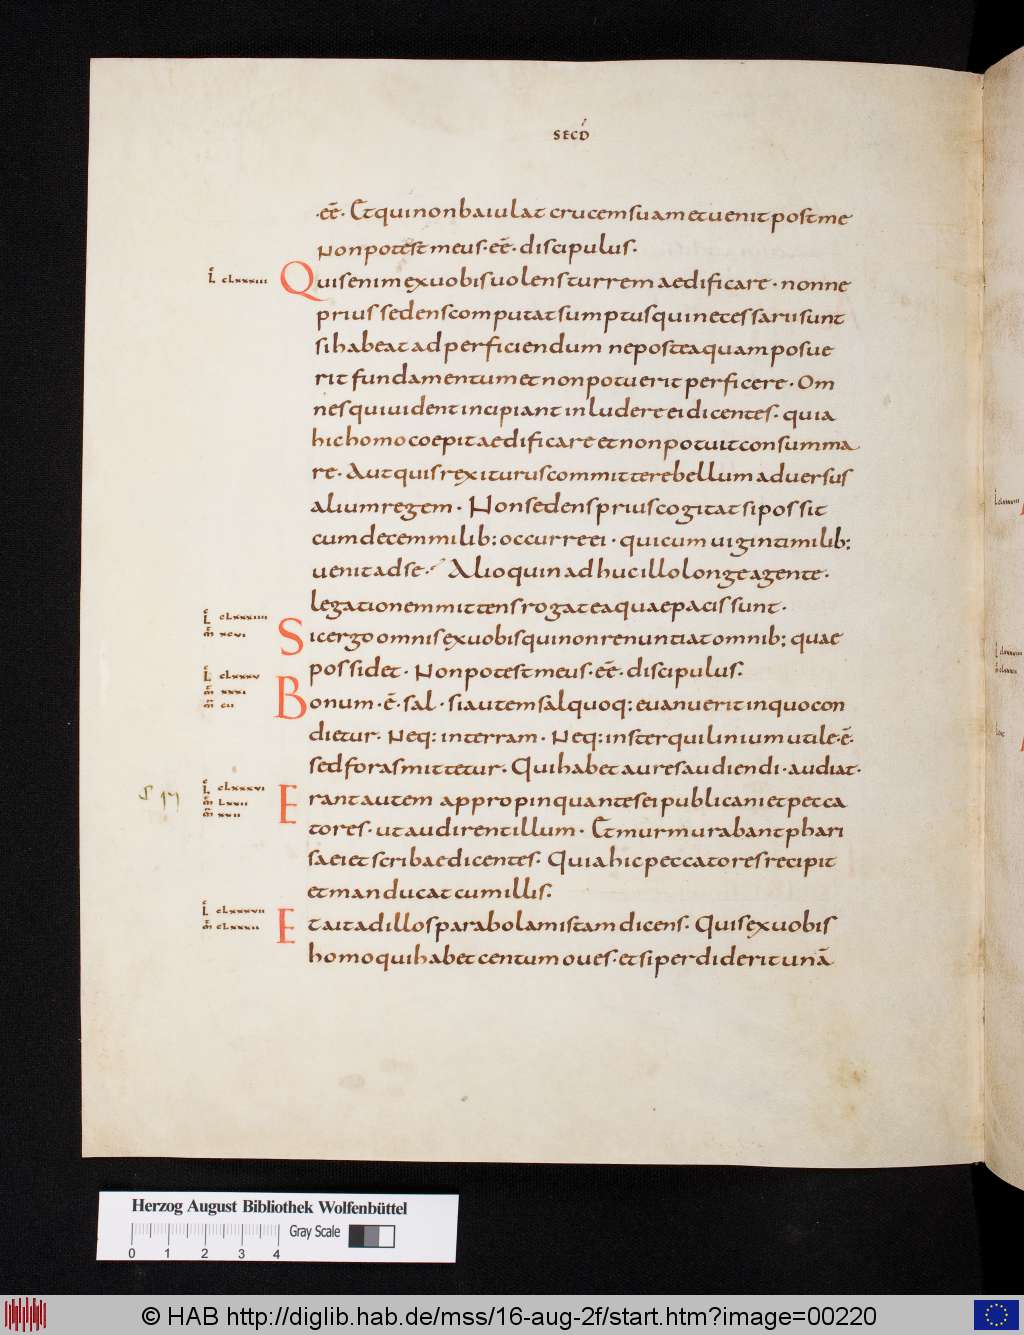 SECD
·eē· Et qui non baiulat crucem suam et uenit post me
Non potest meus · eē · discipulus.
L CLXXXIII
Quis enim ex uobis uolens turrem aedificare · nonne
prius sedens computat sumptus qui necessarii sunt
si habeat ad perficiendum ne postea quam posue
rit fundamentum et non potuerit perficere · Om
nes qui uident incipiant inludere ei dicentes · quia
hic homo coepit aedificare et non potuit consumma
re · Aut quis rex iturus committere bellum aduersus
alium regem · Non sedens prius cogitat si possit
cum decem milib; occurrere ei · qui cum uiginti milib;
uenit ad se · Alioquin adhuc illo longe agente ·
legationem mittens rogat ea quae pacis sunt ·
L CLXXXIIII
m XCVI
Sic ergo omnis ex uobis qui non renuntiat omnib; quae
possidet · Non potest meus · eē · discipulus.
L CLXXXV
m XXXI
m CII
Bonum · ē · sal · si autem sal quoq; euanuerit in quo con
dietur · Neq; in terram · Neq; in sterquilinium utile · ē ·
sed foras mittetur · Qui habet aures audiendi · audiat ·
L CLXXXVI
m LXXII
m XXII
Erant autem appropinquantes ei publicani et pecca
tores · ut audirent illum · Et murmurabant phari
saei et scribae dicentes · Quia hic peccatores recipit
et manducat cum illis.
L CLXXXVII
m CLXXXII
Et ait ad illos parabolam istam dicens · Quis ex uobis
homo qui habet centum oues · et si perdiderit unā
Herzog August Bibliothek Wolfenbüttel
Gray Scale
0 1 2 3 4
© HAB http://diglib.hab.de/mss/16-aug-2f/start.htm?image=00220